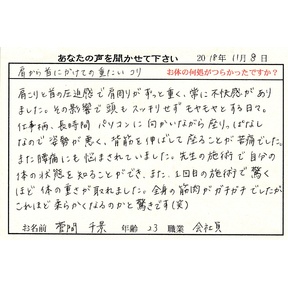 あなたの声を聞かせて下さい 2018年11月8日
肩から首にかけての重たいコリ お体の何処がつらかったですか?
肩こりと首の圧迫感で肩周りがずっと重く、常に不快感があり
ました。その影響で頭もスッキリせずモヤモヤとする日々。
仕事柄、長時間パソコンに向かいながら座りっぱなし
なので姿勢が悪く、背筋を伸ばして座ることが苦痛でした。
また腰痛にも悩まされていました。先生の施術で自分の
体の状態を知ることができ、また、1回目の施術で驚く
ほど体の重さが取れました。全身の筋肉がガチガチでしたが、
これほど柔らかくなるのかと驚きです(笑)
お名前 千景 年齢 23 職業 会社員